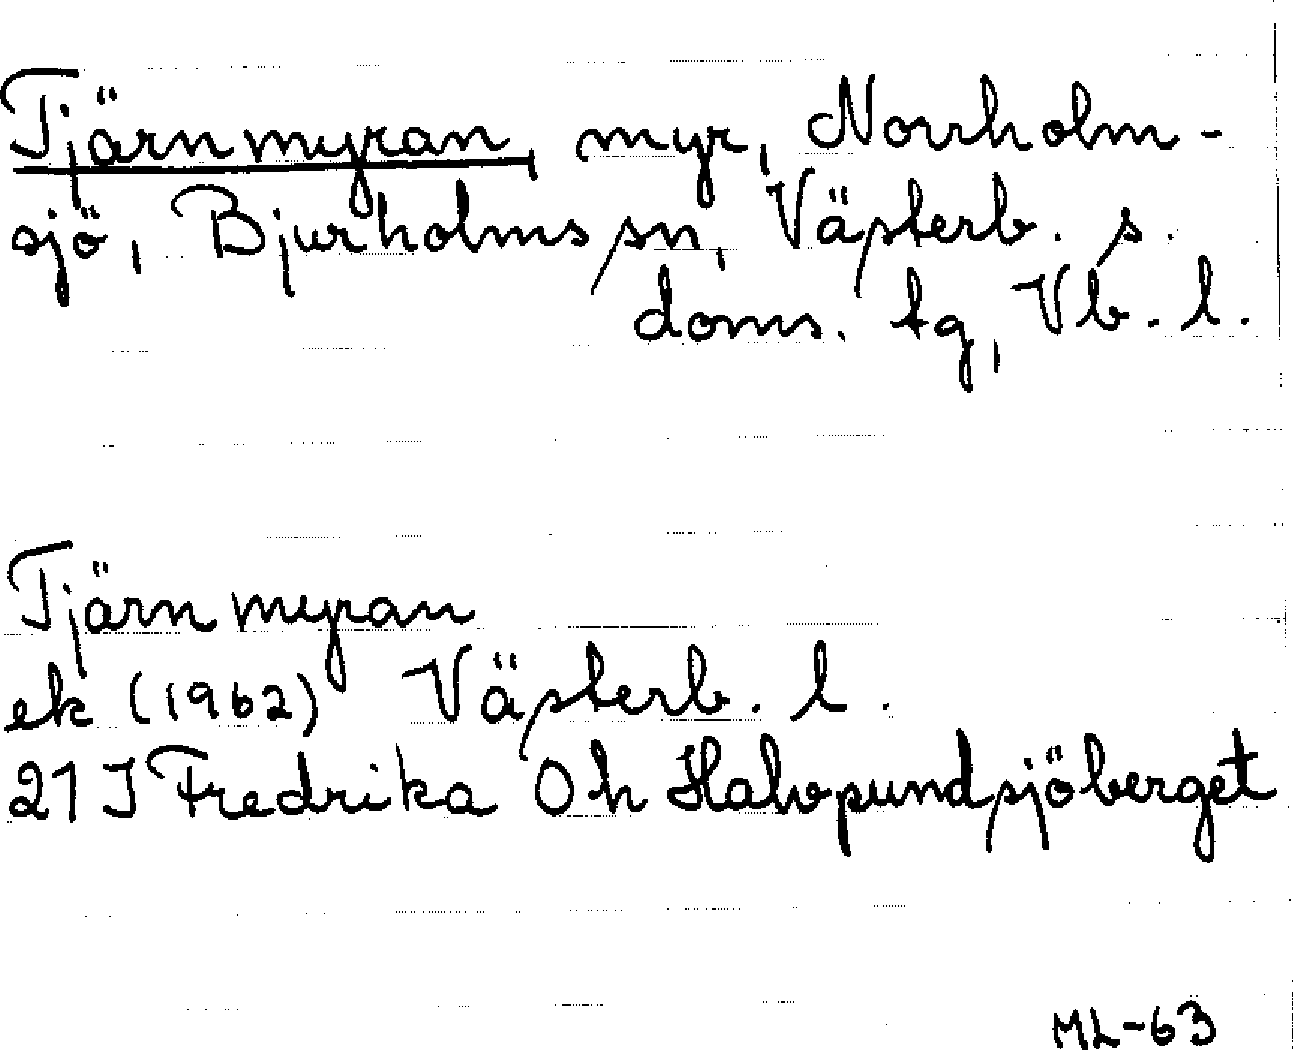 Tjärnmyran, myr, Norrholm-
sjö, Bjurholms sn, Västerb. s.
doms. tg, Vb. l.
Tjärnmyran
ek (1962) Västerb. l.
21 J Fredrika 0 h Halvpundsjöberget
ML-63